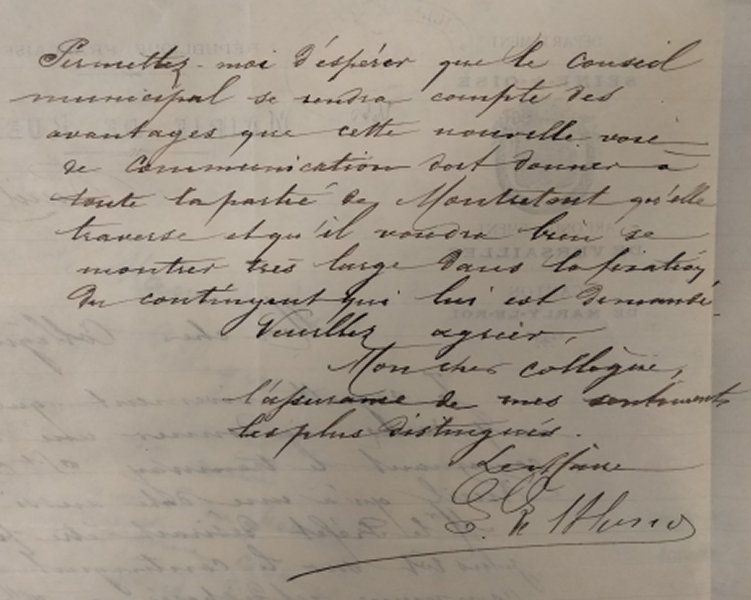 Permettez-moi d'espérer que le Conseil
municipal se rendra compte des
avantages que cette nouvelle voie
de communication doit donner à
toute la partie de Montretout qu'elle
traverse et qu'il voudra bien se
montrer très large dans la fixation
du contingent qui lui est demandé.
Veuillez agréer,
Mon cher collègue,
l'assurance de mes sentiments
les plus distingués.
Le Maire